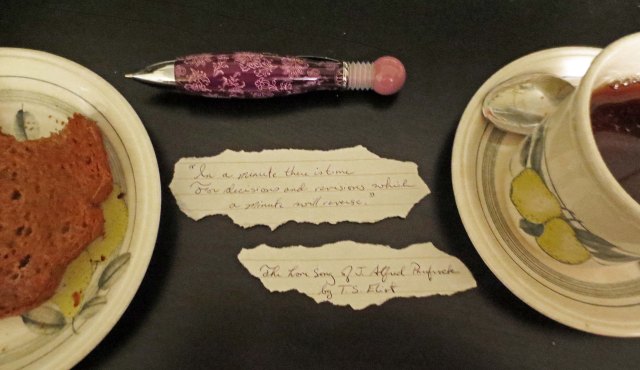 "In a minute there is time
For decisions and revisions which
a minute will reverse."
The Love Song of J. Alfred Prufrock
by T.S. Eliot